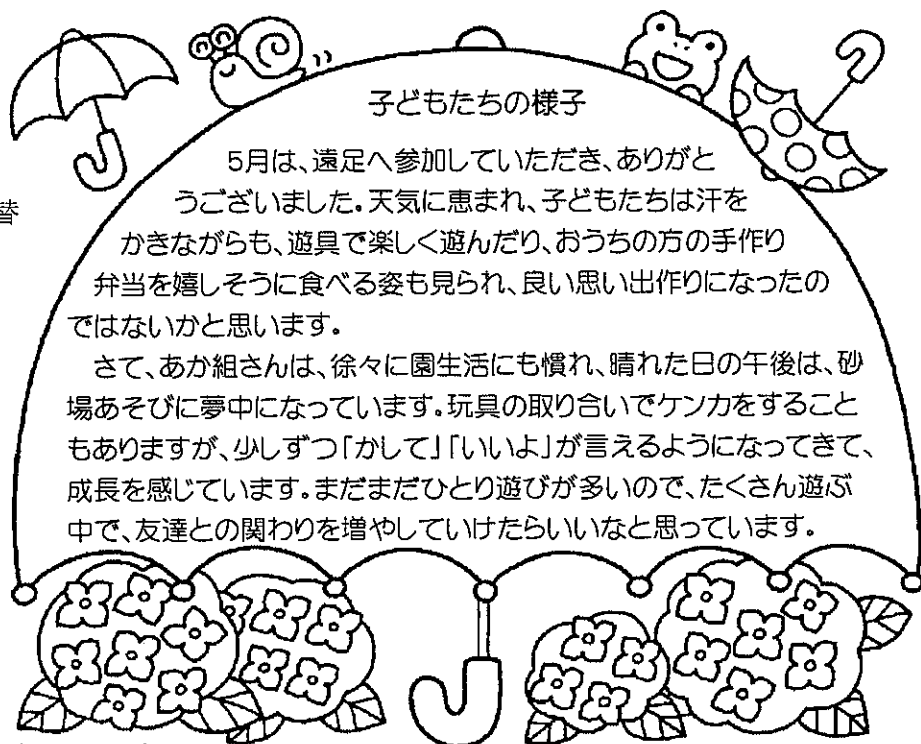 子どもたちの様子
5月は、遠足へ参加していただき、ありがと
うございました。天気に恵まれ、子どもたちは汗を
かきながらも、遊具で楽しく遊んだり、おうちの方の手作り
弁当を嬉しそうに食べる姿も見られ、良い思い出作りになったの
ではないかと思います。
さて、あか組さんは、徐々に園生活にも慣れ、晴れた日の午後は、砂
場あそびに夢中になっています。玩具の取り合いでケンカをすること
もありますが、少しずつ「かして」「いいよ」が言えるようになってきて、
成長を感じています。まだまだひとり遊びが多いので、たくさん遊ぶ
中で、友達との関わりを増やしていけたらいいなと思っています。
替